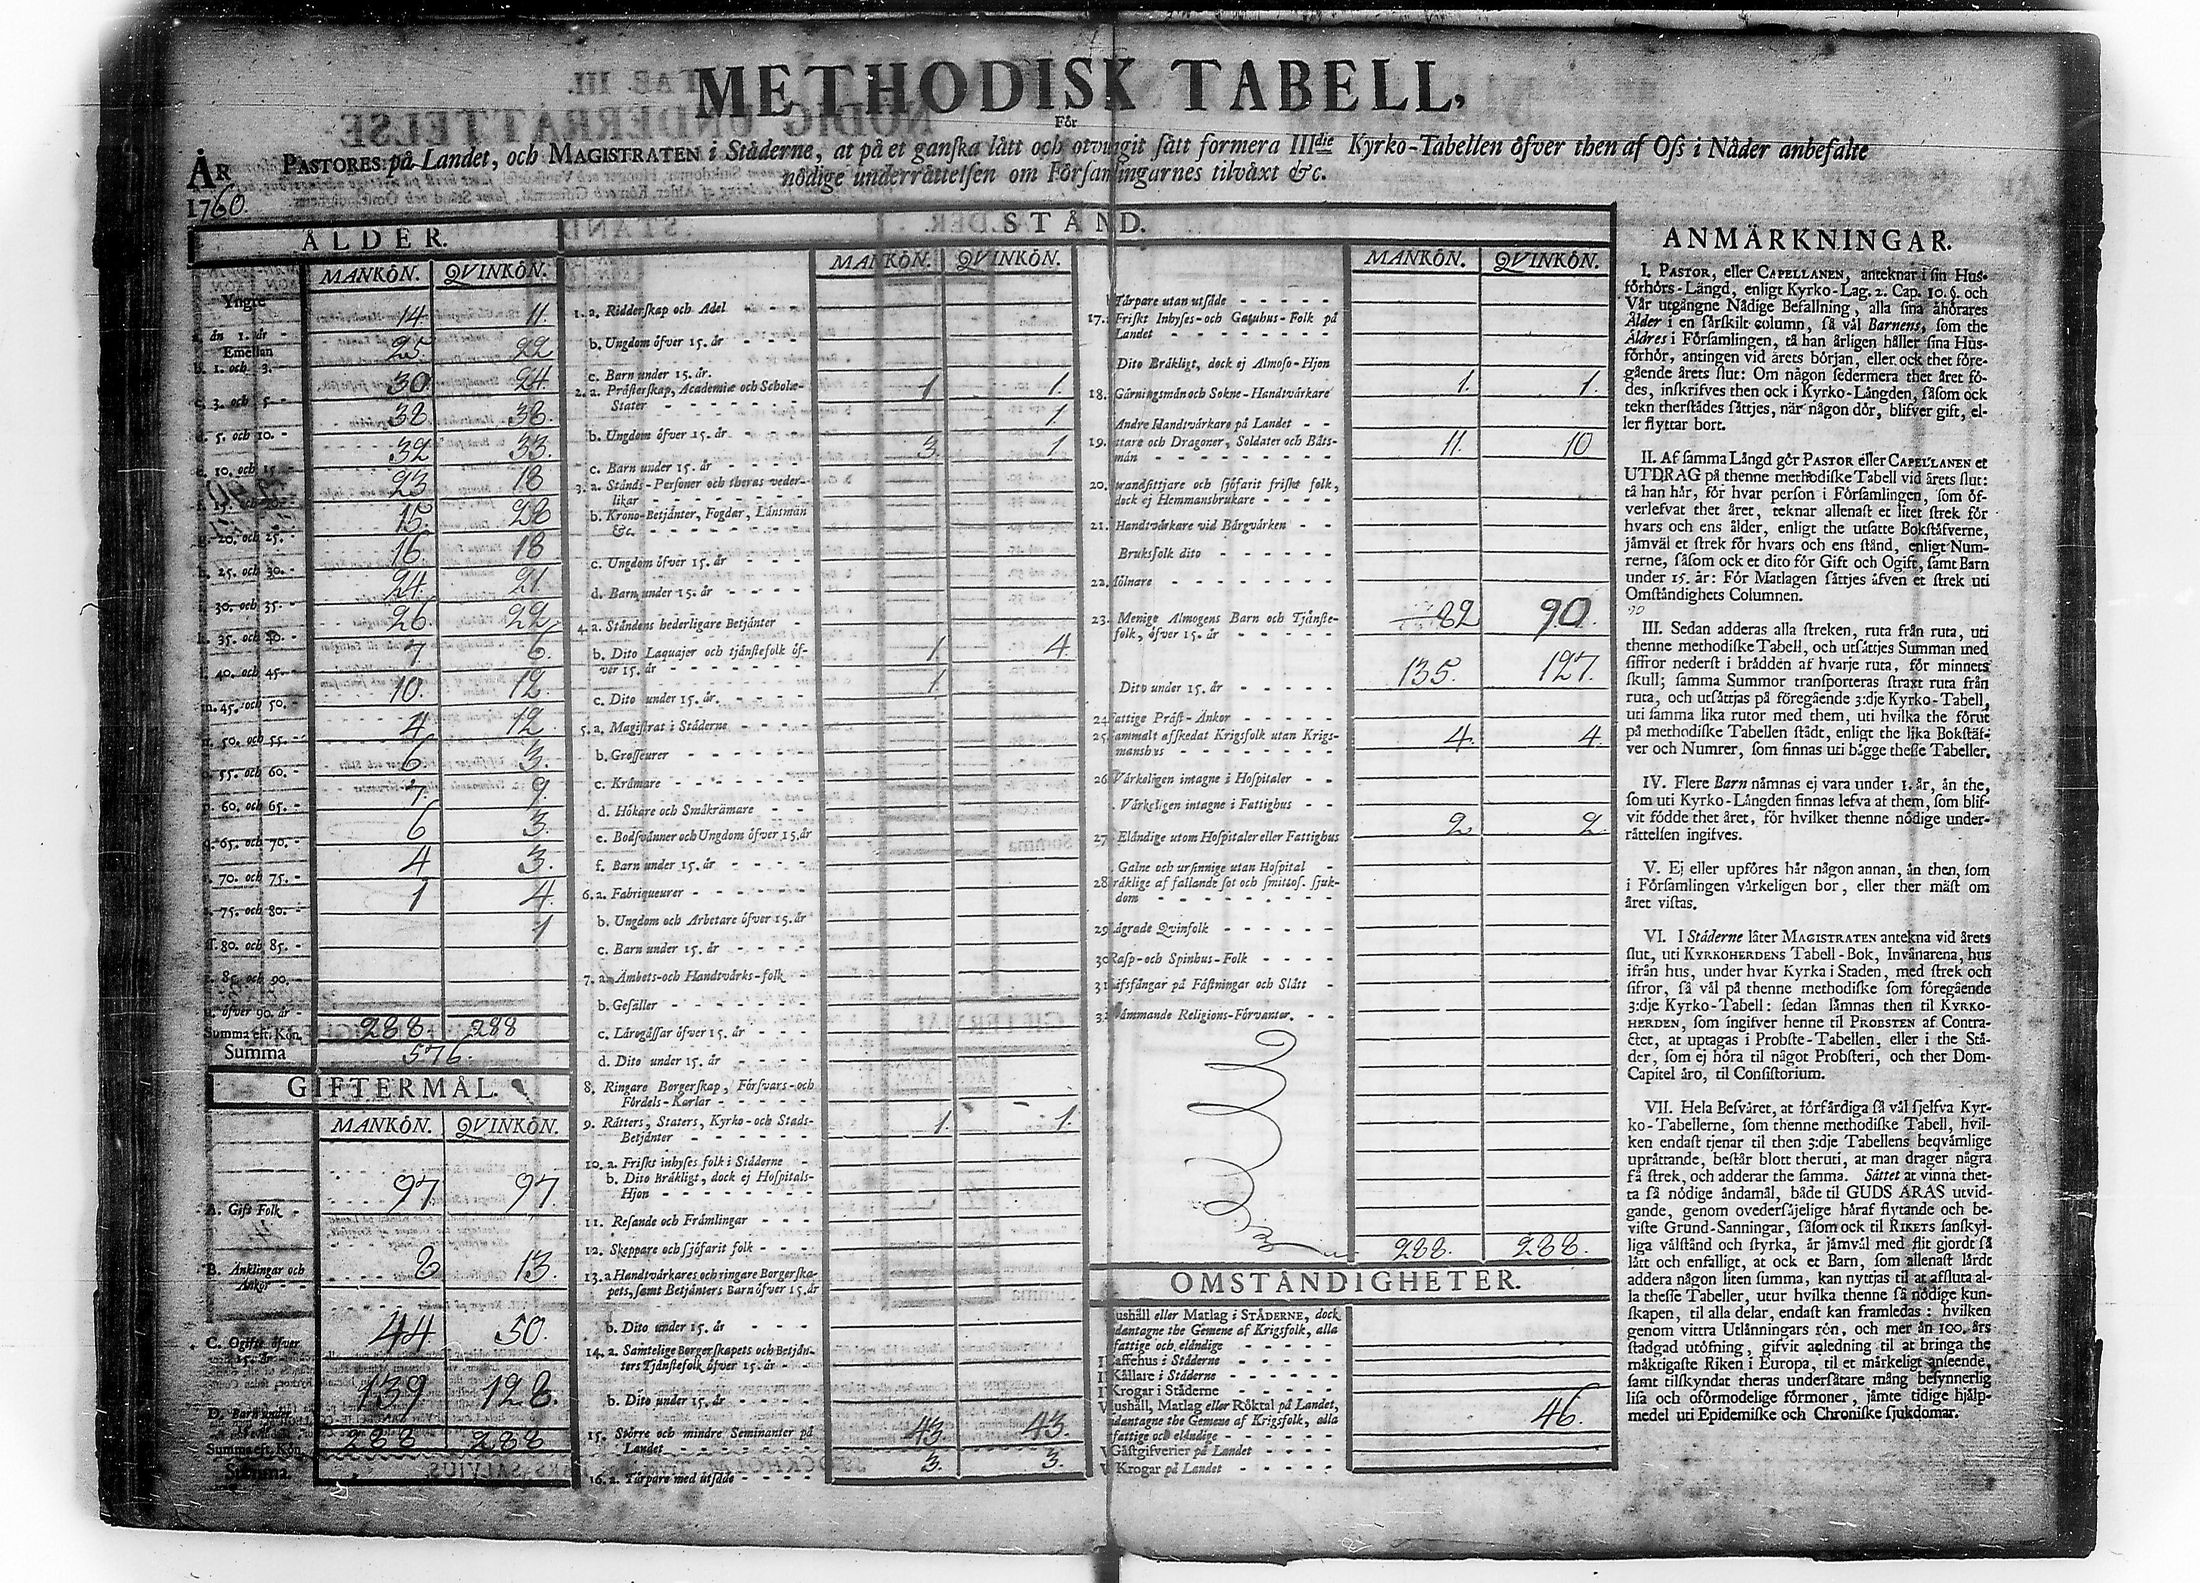 METHODISK TABELL,
För
ÅR PASTORES på Landet, och MAGISTRATEN i Städerne, at på et ganska lätt och otvungit sätt formera IIIdie Kyrko-Tabellen öfver then af Oss i Nåder anbefalte
1760. nödige underrättelsen om Församlingarnes tilväxt &c.
ÅLDER.
MANKÖN. QVINKÖN.
Yngre 14 11.
a. än 1. år -
Emellan 25. 22
b. 1. och 3. -
30 24
c. 3. och 5. -
38 38.
d. 5. och 10. -
32 33.
e. 10. och 15. -
23 18
f. 15. och 20. -
15. 28
g. 20. och 25. -
16. 18
h. 25. och 30. -
24. 21
i. 30. och 35. -
26 22
k. 35. och 40. -
7 6.
l. 40. och 45. -
10. 12.
m. 45. och 50. -
4 12.
n. 50. och 55. -
6 3.
o. 55. och 60. -
7. 9.
p. 60. och 65. -
6 3.
q. 65. och 70. -
4 3.
r. 70. och 75. -
1 4.
s. 75. och 80. -
1
ſſ. 80. och 85. -
t. 85. och 90. -
u. öfver 90. år -
Summa eft. Kön. 288. 288
Summa 576.
GIFTERMÅL.
MANKÖN. QVINKÖN.
97 97.
A. Gift Folk -
8 13.
B. Änklingar och
Änkor - -
44 50.
C. Ogifte öfver
15. år - -
139 128.
D. Barn under
Summa eft. Kön. 288 288
Summa.
STÅND.
MANKÖN. QVINKÖN.
1. a. Ridderskap och Adel - - - -
b. Ungdom öfver 15. år - - - -
c. Barn under 15. år.
2. a. Prästerskap, Academiæ och Scholæ- 1 1.
Stater - - - - - - -
1
b. Ungdom öfver 15. år - - - -
3. 1
c. Barn under 15. år - - - -
3. a. Stånds-Personer och theras veder-
likar - - - - - - -
b. Krono-Betjänter, Fogdar, Länsmän
&c. - - - - - - -
c. Ungdom öfver 15. år - - - -
d. Barn under 15. år - - - -
4. a. Ståndens hederligare Betjänter -
b. Dito Laquajer och tjänstefolk öf- 1 4.
ver 15. år - - - - - -
1
c. Dito under 15. år. - - - -
5. a. Magistrat i Städerne - - - -
b. Grosseurer - - - - - -
c. Krämare - - - - - -
d. Hökare och Småkrämare - -
e. Bodsvänner och Ungdom öfver 15. år
f. Barn under 15. år - - - -
6. a. Fabriqueurer - - - - -
b. Ungdom och Arbetare öfver 15. år
c. Barn under 15. år - - - -
7. a. Ämbets-och Handtvärks-folk -
b. Gesäller - - - - - -
c. Läregåssar öfver 15. år - - -
d. Dito under 15. år - - - -
8. Ringare Borgerskap, Försvars-och
Fördels-Karlar - - - -
9. Rätters, Staters, Kyrko-och Stads- 1. 1.
Betjänter - - - - - -
10. a. Friskt inhyses folk i Städerne -
b. Dito Bräkligt, dock ej Hospitals-
Hjon - - - - - - -
11. Resande och Främlingar - - -
12. Skeppare och sjöfarit folk - - -
13. a Handtvärkares och ringare Borgerska-
pets, samt Betjänters Barn öfver 15. år
b. Dito under 15. år - - - -
14. a. Samtelige Borgerskapets och Betjän-
ters Tjänstefolk öfver 15. år - -
b. Dito under 15. år - - - -
15. Större och mindre Seminanter på 43. 43.
Landet - - - - - -
3. 3.
16. a. Tärpare med utsäde - - - -
MANKÖN. QVINKÖN.
Tärpare utan utsäde - - - - -
17. Friskt Inhyses-och Gatuhus-Folk på
Landet - - - - - -
Dito Bräkligt, dock ej Almoso-Hjon
1. 1.
18. Gärningsmän och Sokne-Handtvärkare
Andre Handtvärkare på Landet - -
19. ttare och Dragoner, Soldater och Båts- 11. 10
män - - - - - - -
20. trandsittjare och sjöfarit friske folk,
dock ej Hemmansbrukare - - -
21. Handtvärkare vid Bärgvärken - -
Bruksfolk dito - - - - - -
22. lölnare - - - - - - -
82 90.
23. Menige Almogens Barn och Tjänste-
folk, öfver 15. år - - - - -
135. 127.
Dito under 15. år - - - - -
24. attige Präst-Änkor - - - - -
25. ammalt afskedat Krigsfolk utan Krigs- 4. 4.
manshus - - - - - -
26. Värkeligen intagne i Hospitaler - -
Värkeligen intagne i Fattighus - -
2 2
27. Eländige utom Hospitaler eller Fattighus
Galne och ursinnige utan Hospital -
28. räklige af fallande sot och smittos. sjuk-
dom - - - - - - -
29. ägrade Qvinfolk - - - - -
30. Rasp-och Spinhus-Folk - - - -
31. ifsfångar på Fästningar och Slått -
3 ämmande Religions-Förvanter. - -
288. 288.
OMSTÄNDIGHETER.
ushåll eller Matlag i STÄDERNE, dock
dantagne the Gemene af Krigsfolk, alla
fattige och eländige - - - -
affehus i Städerne - - - - -
Källare i Städerne - - - - -
Krogar i Städerne - - - - -
ushåll, Matlag eller Röktal på Landet, 46.
dantagne the Gemene af Krigsfolk, alla
fattige och eländige - - - -
Gästgifverier på Landet - - - -
Krogar på Landet - - - - -
ANMÄRKNINGAR.
I. PASTOR, eller CAPELLANEN, anteknar i sin Hus-
förhörs-Längd, enligt Kyrko-Lag. 2. Cap. 10. §. och
Vår utgångne Nådige Befallning, alla sina åhörares
Ålder i en särskilt column, så väl Barnens, som the
Äldres i Församlingen, tå han årligen håller sina Hus-
förhör, antingen vid årets början, eller ock thet före-
gående årets slut: Om någon sedermera thet året fö-
des, inskrifves then ock i Kyrko-Längden, såsom ock
tekn therstädes sättjes, när någon dör, blifver gift, el-
ler flyttar bort.
II. Af samma Längd gör PASTOR eller CAPELLANEN et
UTDRAG på thenne methodiske Tabell vid årets slut:
tå han här, för hvar person i Församlingen, som öf-
verlefvat thet året, teknar allenast et litet strek för
hvars och ens ålder, enligt the utsatte Bokstäfverne,
jämväl et strek för hvars och ens stånd, enligt Num-
rerne, såsom ock et dito för Gift och Ogift, samt Barn
under 15. år: För Matlagen sättjes äfven et strek uti
Omständighets Columnen.
III. Sedan adderas alla streken, ruta från ruta, uti
thenne methodiske Tabell, och utsättjes Summan med
siffror nederst i brädden af hvarje ruta, för minnets
skull; samma Summor transporteras straxt ruta från
ruta, och utsättjas på föregående 3:dje Kyrko-Tabell,
uti samma lika rutor med them, uti hvilka the förut
på methodiske Tabellen städt, enligt the lika Bokstäf-
ver och Numrer, som finnas uti bägge thesse Tabeller.
IV. Flere Barn nämnas ej vara under 1. år, än the,
som uti Kyrko-Längden finnas lefva af them, som blif-
vit födde thet året, för hvilket thenne nödige under-
rättelsen ingifves.
V. Ej eller upföres här någon annan, än then, som
i Församlingen värkeligen bor, eller ther mäst om
året vistas.
VI. I Städerne låter MAGISTRATEN antekna vid årets
slut, uti KYRKOHERDENS Tabell-Bok, Invånarena, hus
ifrån hus, under hvar Kyrka i Staden, med strek och
sifror, så väl på thenne methodiske som föregående
3:dje Kyrko-Tabell: sedan lämnas then til KYRKO-
HERDEN, som ingifver henne til PROBSTEN af Contra-
ctet, at uptagas i Probste-Tabellen, eller i the Stä-
der, som ej höra til något Probsteri, och ther Dom-
Capitel äro, til Consistorium.
VII. Hela Besväret, at förfärdiga så väl sjelfva Kyr-
ko-Tabellerne, som thenne methodiske Tabell, hvil-
ken endast tjenar til then 3:dje Tabellens beqvämlige
uprättande, består blott theruti, at man drager några
få strek, och adderar the samma. Sättet at vinna thet-
ta så nödige ändamål, både til GUDS ÄRAS utvid-
gande, genom ovedersäjelige häraf flytande och be-
viste Grund-Sanningar, såsom ock til RIKETS sanskyl-
liga välstånd och styrka, är jämväl med flit gjordt så
lätt och enfälligt, at ock et Barn, som allenast lärdt
addera någon liten summa, kan nyttjas til at afsluta al-
la thesse Tabeller, utur hvilka thenne så nödige kun-
skapen, til alla delar, endast kan framledas: hvilken
genom vittra Utlänningars rön, och mer än 100. års
stadgad utöfning, gifvit anledning til at bringa the
mäktigaste Riken i Europa, til et märkeligt anseende,
samt tilskyndat theras undersåtare mång besynnerlig
lisa och oförmodelige förmoner, jämte tidige hjälp-
medel uti Epidemiske och Chroniske sjukdomar.